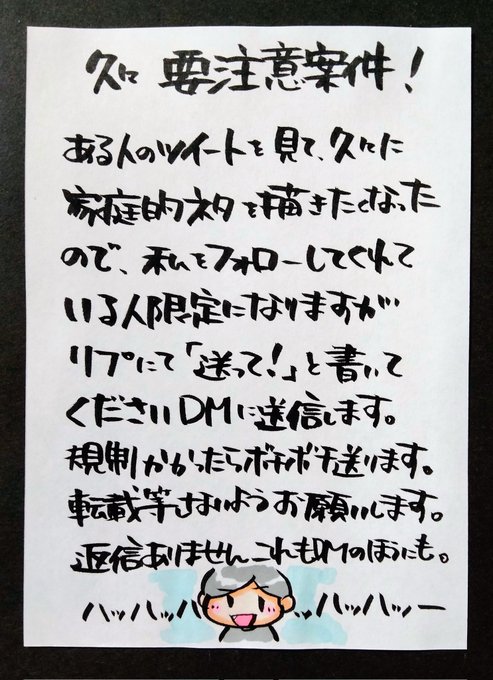 久々 要注意案件!
ある人のツイートを見て、久々に
家庭的ネタを描きたくなった
ので、私をフォローしてくれて
いる人限定になりますが
リプにて「送って!」と書いて
くださいDMに送信します。
規制かかったらボチボチ送ります。
転載等さないようお願いします。
返信ありません これもDMのほうにも。
ハッハッハ ッハッハッー